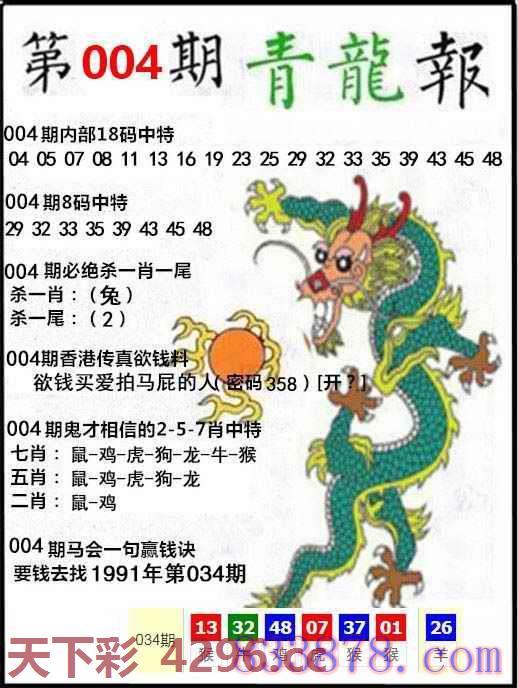 第004期青龍報
004期内部18码中特
04 05 07 08 11 13 16 19 23 25 29 32 33 35 39 43 45 48
004期8码中特
29 32 33 35 39 43 45 48
004期必绝杀一肖一尾
杀一肖：(兔)
杀一尾：(2)
004期香港传真欲钱料
欲钱买爱拍马屁的人(密码358)[开？]
004期鬼才相信的2-5-7肖中特
七肖：鼠-鸡-虎-狗-龙-牛-猴
五肖：鼠-鸡-虎-狗-龙
二肖：鼠-鸡
004期马会一句赢钱诀
要钱去找1991年第034期
034期 13 32 48 07 37 01 26
猴 牛 鸡 虎 猴 猴 羊
天下彩 4296.cc